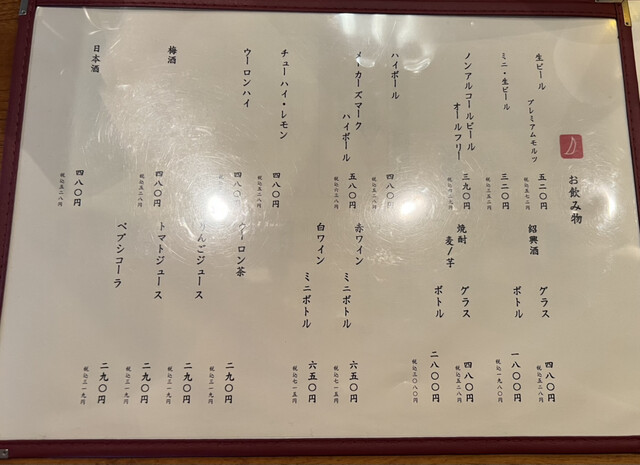 お飲み物
生ビール
プレミアムモルツ 五二〇円
税込五七二円
ミニ・生ビール 三二〇円
税込三五二円
ノンアルコールビール
オールフリー 三九〇円
税込四二九円
ハイボール 四八〇円
税込五二八円
メーカーズマーク
ハイボール 五八〇円
税込六三八円
チューハイ・レモン 四八〇円
税込五二八円
ウーロンハイ 四八〇円
税込五二八円
梅酒 四八〇円
税込五二八円
日本酒 四八〇円
税込五二八円
紹興酒 グラス 四八〇円
税込五二八円
ボトル 一八〇〇円
税込一九八〇円
焼酎
麦/芋 グラス 四八〇円
税込五二八円
ボトル 二八〇〇円
税込三〇八〇円
赤ワイン ミニボトル 六五〇円
税込七一五円
白ワイン ミニボトル 六五〇円
税込七一五円
ウーロン茶 二九〇円
税込三一九円
りんごジュース 二九〇円
税込三一九円
トマトジュース 二九〇円
税込三一九円
ペプシコーラ 二九〇円
税込三一九円